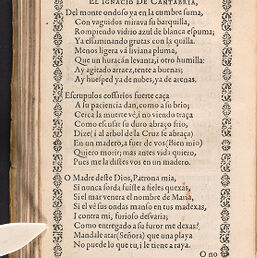 EL IGNACIO DE CANTABRIA,
Del monte ondoso ya en la cumbre suma,
Con vaguidos mirava su barquilla,
Rompiendo vidrio azul de blanca espuma;
Ya examinando grutas con la quilla.
Menos ligera và liviana pluma,
Que un huracàn levanta, i otro humilla:
Ay agitado arraez, tente a buenas;
Ay huesped ya de nubes, ya de arenas.
Escrupulos cossarios fuerte caça
A su paciencia dan, como a su brio;
Cerca la muerte vè, i no viendo traça
Como escusar su duro abraço frio,
Dize (i al arbol de la Cruz se abraça)
En un madero, a fuer de vos (Bien mio)
Quiero morir; mas antes vida quiero,
Pues me la distes vos en un madero.
O Madre deste Dios, Patrona mia,
Si nunca sorda fuiste a fieles quexas,
Si el mar venera el nombre de Maria,
Si el vè sus ondas manso en tus madexas,
I contra mi, furioso desvaria;
Como entregado a su furor me dexas?
Mandale atar (Señora) que una playa
No puede lo que tu, i le tiene a raya.
O no